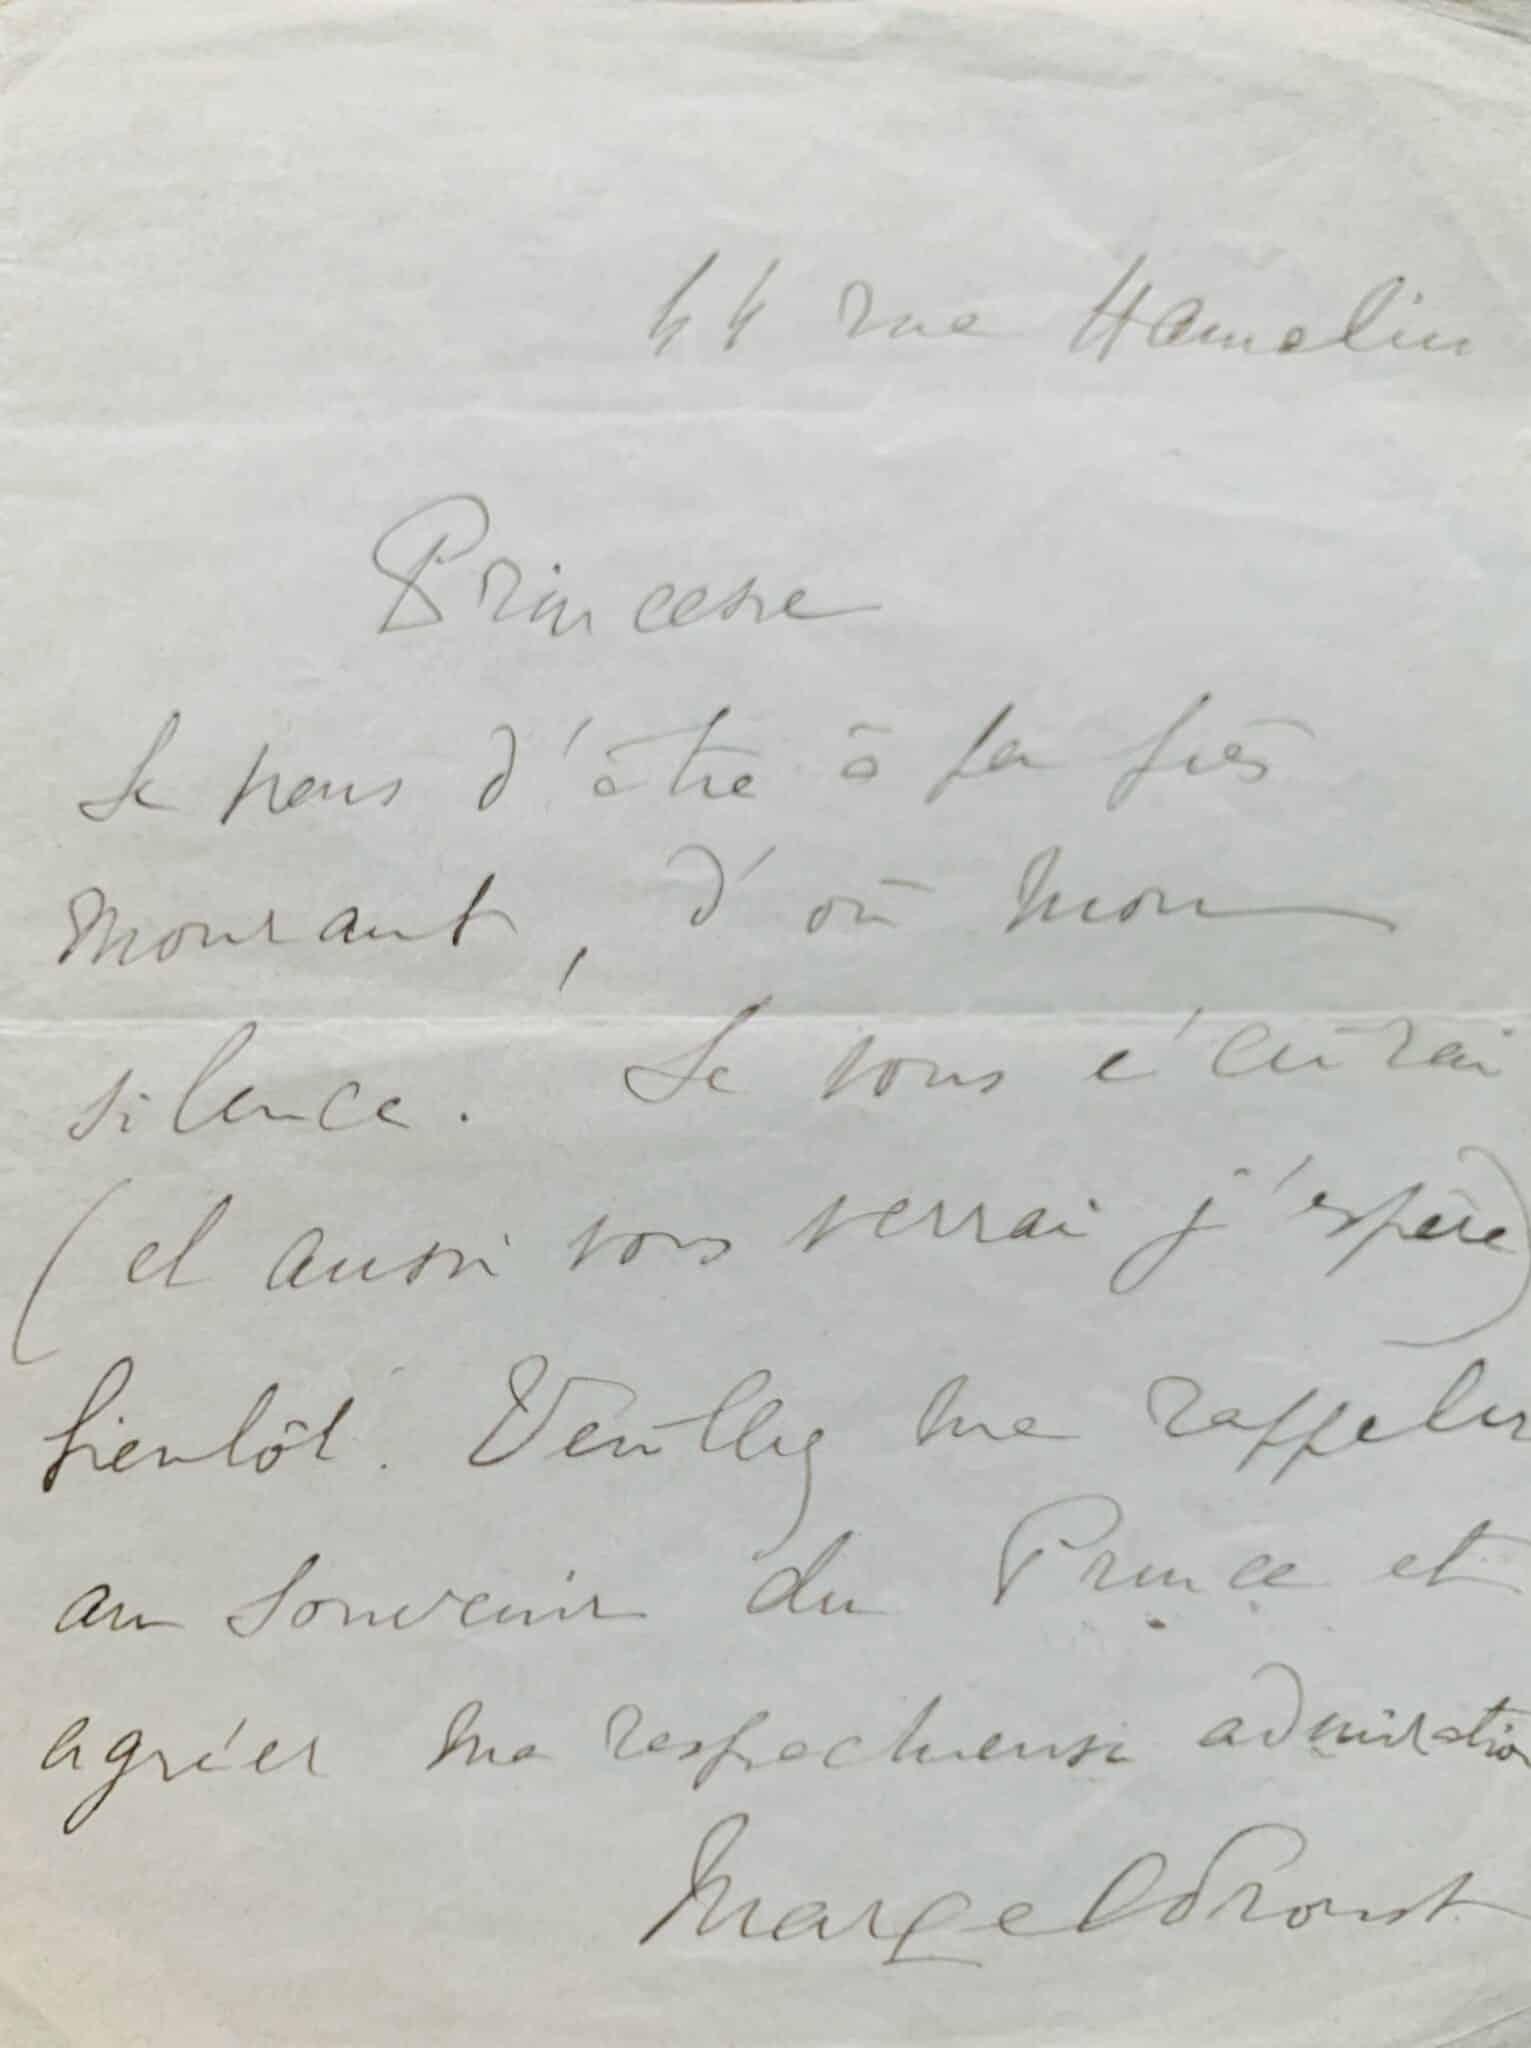 44 rue Hamelin
Princesse
Je viens d'être à peu près
mourant, d'où mon
silence. Je vous écrirai
(et aussi vous verrai j'espère)
bientôt. Veuillez me rappeler
au souvenir du Prince et
agréer ma respectueuse admiration
Marcel Proust